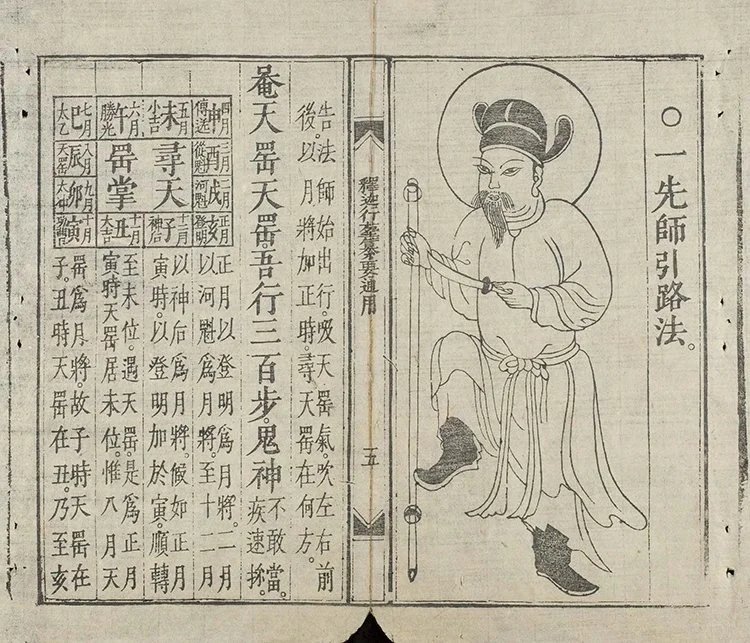 ○一先師引路法。
釋 行 要通用
五
告法師始出行。吸天罡氣。吹左右前
後。以月將加正時。尋天罡在何方。
菴天罡天罡。吾行三百步。鬼神
不敢當。
疾速
四月申傳送
三月酉從魁
二月戌河魁
正月亥登明
五月未小吉
尋天
十二月子神后
六月午勝光
罡掌
十一月丑大吉
七月巳太乙
八月辰天罡
九月卯太
十月寅
正月以登明爲月將。二月
以河魁爲月將。至十二月
以神后爲月將。候如正月
寅時。以登明加於寅。順轉
至未位。遇天罡。是爲正月
寅時天罡居未位。惟八月天
罡爲月將。故子時天罡在
子。丑時天罡在丑。乃至亥